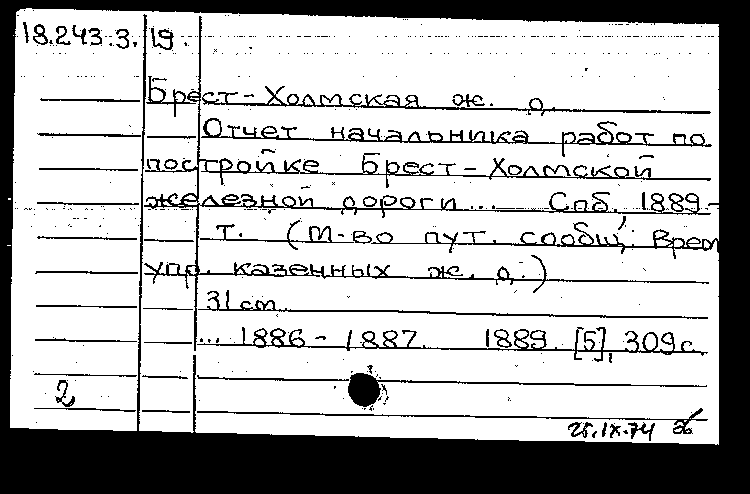 18.243.3.19.
Брест-Холмская ж. д.
Отчет начальника работ по
постройке Брест-Холмской
железной дороги... Спб., 1889-
т. (М-во пут. сообщ. Врем.
упр. казенных ж. д.)
31 см.
... 1886-1887. 1889. [5], 309 с.
2
25.IX.74